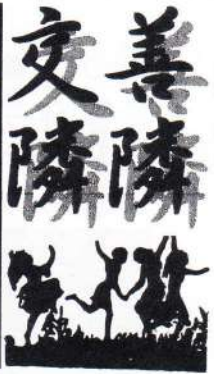 善隣
交隣